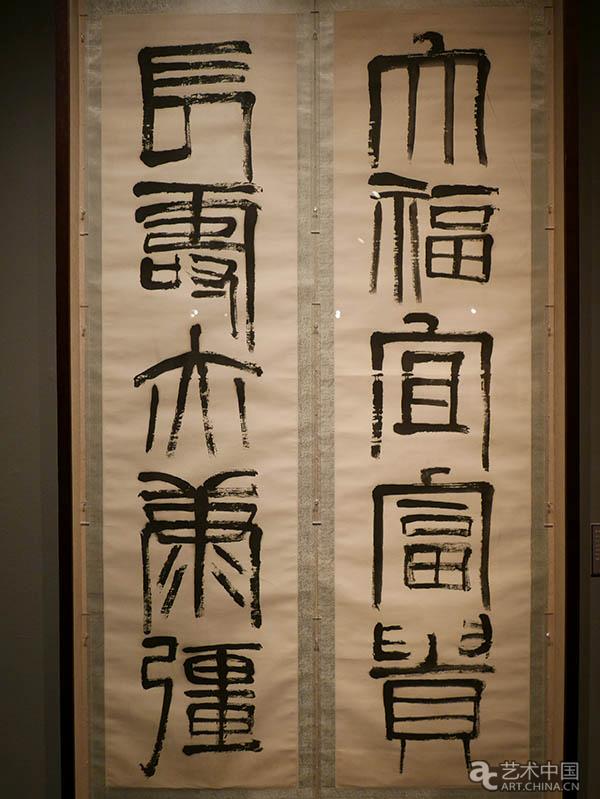 大福宜富貴
長壽亦康彊
艺术中国
ART.CHINA.CN